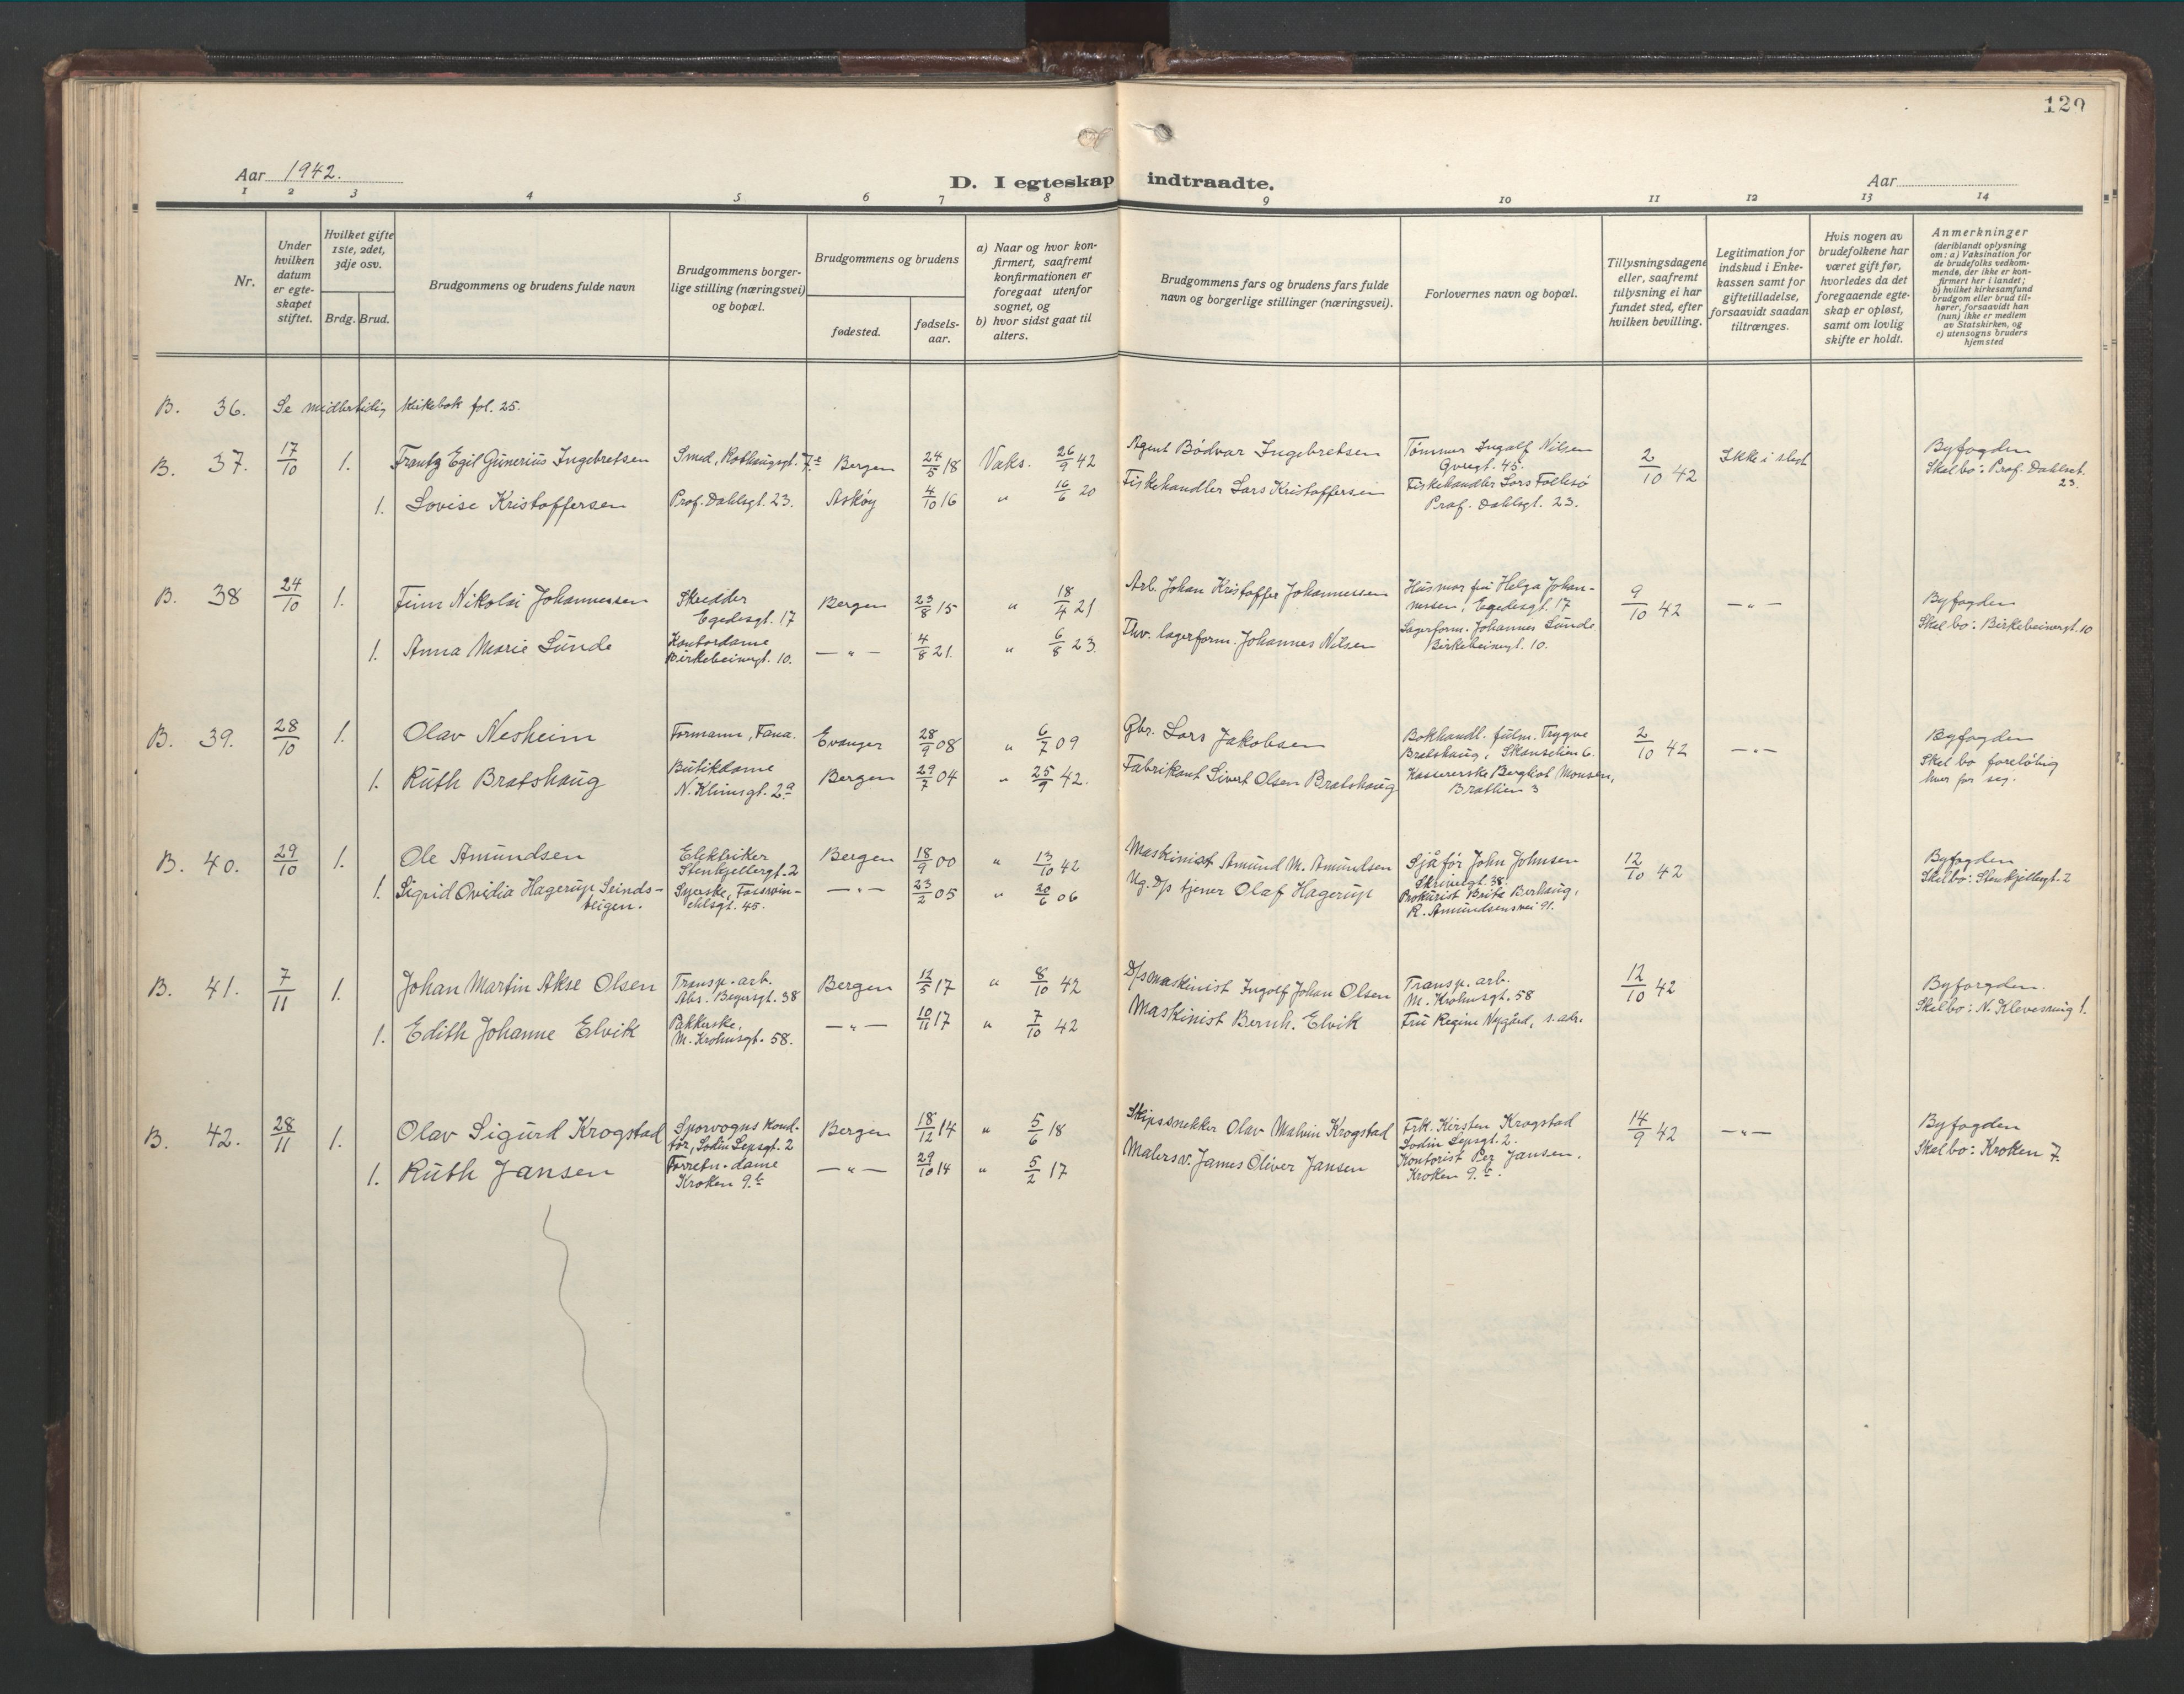 129
Aar 1942.
D. I egteskap indtraadte.
Aar
1 2 3 4 5 6 7 8 9 10 11 12 13 14
Nr.
Under hvilken datum er egte-skapet stiftet.
Hvilket gifte 1ste, 2det, 3dje osv.
Brdg. Brud.
Brudgommens og brudens fulde navn
Brudgommens borger-lige stilling (næringsvei) og bopæl.
Brudgommens og brudens
fødested.
fødsels-aar.
a) Naar og hvor kon-firmert, saafremt konfirmationen er foregaat utenfor sognet, og
b) hvor sidst gaat til alters.
Brudgommens fars og brudens fars fulde navn og borgerlige stillinger (næringsvei).
Forlovernes navn og bopæl.
Tillysningsdagene eller, saafremt tillysning ei har fundet sted, efter hvilken bevilling.
Legitimation for indskud i Enke-kassen samt for giftetilladelse, forsaavidt saadan tiltrænges.
Hvis nogen av brudefolkene har været gift før, hvorledes da det foregaaende egte-skap er opløst, samt om lovlig skifte er holdt.
Anmerkninger
(deriblandt oplysning om: a) Vaksination for de brudefolks vedkom-mende, der ikke er kon-firmert her i landet; b) hvilket kirkesamfund brudgom eller brud til-hører, forsaavidt han (hun) ikke er medlem av Statskirken, og c) utensogns bruders hjemsted
B. 36. Se midlertidig kirkebok fol. 25.
B. 37. 17/10 1. Frantz Egil Gunerius Ingebretsen Smed, Rothaugsgt. 7e Bergen 24/5 18 Vaks. 26/9 42 Agent Bødvar Ingebretsen Tømmer Ingolf Nilsen 2/10 42 Ikke i slegt Byfogden
45. Skal bo: Prof. Dahlsgt. 23.
1. Lovise Kristoffersen Prof. Dahlsgt. 23. Askøy 4/10 16 " 16/6 20 Fiskehandler Lars Kristoffersen Fiskehandler Lars Follesø
Prof. Dahlsgt. 23.
B. 38 24/10 1. Finn Nikolai Johannessen Skredder Bergen 23/8 15 " 18/4 21 Arb. Johan Kristoffer Johannessen Husmor fru Helga Johan- 9/10 42 —"— Byfogden
Egedesgt. 17 nessen, Egedesgt. 17 Skal bo: Birkebeinergt. 10
1. Anna Marie Sunde Kontordame —"— 4/8 21. " 6/8 23. Thv. lagerform. Johannes Nilsen Lagerform. Johannes Sunde
Birkebeinergt. 10. Birkebeinergt. 10.
B. 39. 28/10 1. Olav Nesheim Formann, Fana. Evanger 28/9 08 " 6/7 09 Gbr. Lars Jakobsen Bokhandl. fulm. Trygve 2/10 42 —"— Byfogden
Bratshaug, Skanselien 6. Skal bo foreløbig
1. Ruth Bratshaug Butikdame Bergen 29/7 04 " 25/9 42. Fabrikant Sivert Olsen Bratshaug Kassererske Bergliot Monsen, hver for seg.
N. Klimsgt. 2a Bratlien 3
B. 40. 29/10 1. Ole Amundsen Elektriker Bergen 18/9 00 " 13/10 42 Maskinist Amund M. Amundsen Sjåfør John Johnsen 12/10 42 Byfogden
Stenkjellergt. 2 38. Skal bo: Stenkjellergt. 2
1. Sigrid Ovidia Hagerup Seinds- Syerske, Fosswin- —"— 23/2 05 " 20/6 06 Ug. D/s tjener Olaf Hagerup Prokurist Brita Berhaug,
bligen. ckelsgt. 45. R. Amundsensvei 91.
B. 41. 7/11 1. Johan Martin Akse Olsen Transp.-arb. Bergen 12/5 17 " 8/10 42 D/smaskinist Ingolf Johan Olsen Transp. arb. 12/10 42 Byfogden.
Abs. Beyersgt. 38 M. Krohnsgt. 58 Skal bo: N. Klevesmug 1.
1. Edith Johanne Elvik Pakkerske, —"— 10/11 17 " 7/10 42 Maskinist Bernh. Elvik Fru Regine Nygård, s. adr.
M. Krohnsgt. 58.
B. 42. 28/11 1. Olav Sigurd Krogstad Sporvogns kond- Bergen 18/12 14 " 5/6 18 Skipssnekker Olav Malvin Krogstad Frk. Kirsten Krogstad 14/9 42 —"— Byfogden
tør, Lodin Lepsgt. 2 Lodin Lepsgt. 2. Skal bo: Kroken 7.
1. Ruth Jansen Forretn.-dame —"— 29/10 14 " 5/2 17 Malersv. James Oliver Jansen Kontorist Per Jansen.
Kroken 9.b Kroken 9.b.